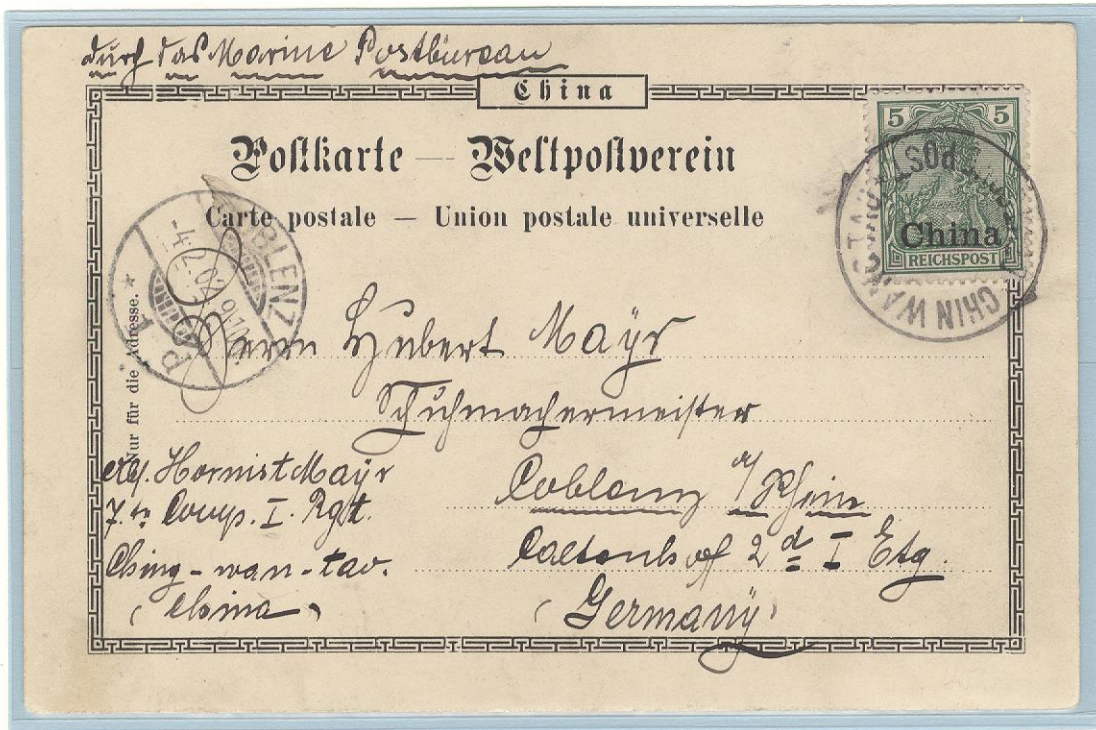 durch das Marine Postbüreau
China
Postkarte — Weltpostverein
Carte postale — Union postale universelle
5 5
China
REICHSPOST
POST
CHIN WANG TAU
COBLENZ
-4.2.02. 9-10V.
* 1 p
Nur für die Adresse.
Herrn Hubert Mayr
Schuhmachermeister
Coblenz a/Rhein
2d I Etg.
(Germany)
Hornist Mayr
7.te Comp. I. Rgt.
Ching-wan-tao.
(China)